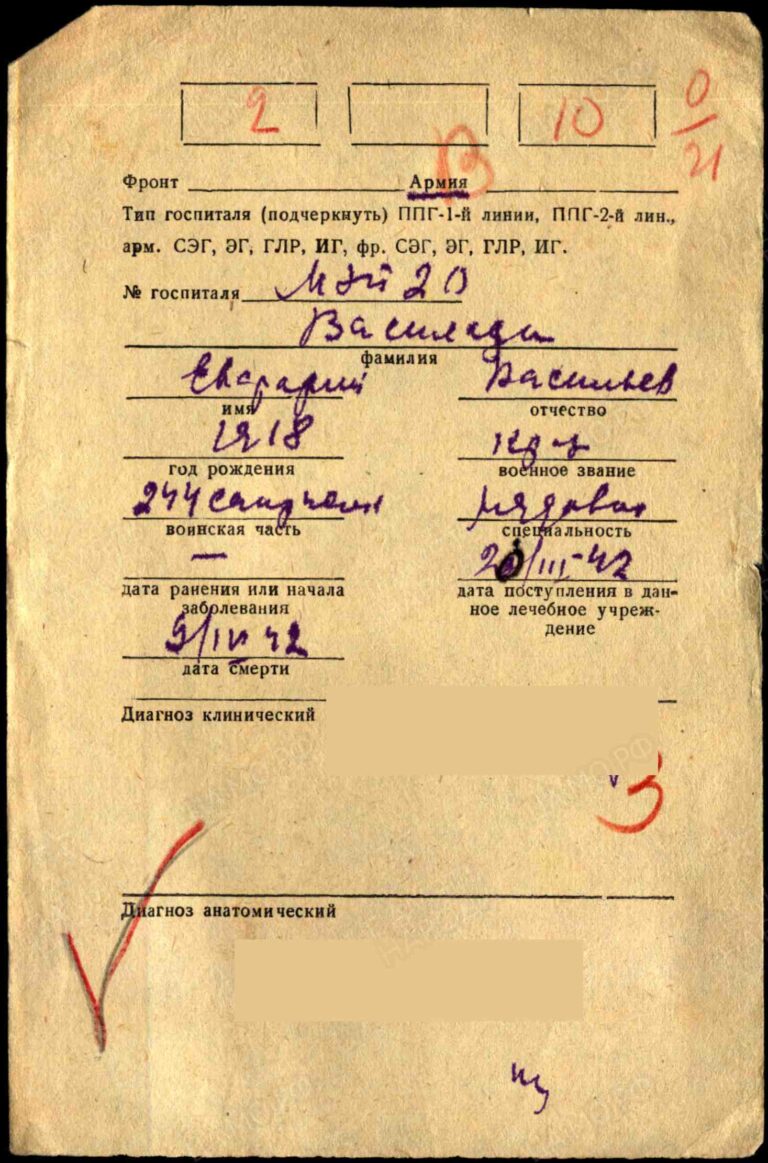 2 10 0/21
В
Фронт Армия
Тип госпиталя (подчеркнуть) ППГ-1-й линии, ППГ-2-й лин.,
арм. СЭГ, ЭГ, ГЛР, ИГ, фр. СЭГ, ЭГ, ГЛР, ИГ.
№ госпиталя МЭП 20
Василади
фамилия
Васильев
имя отчество
1918
год рождения военное звание
244 рядовой
воинская часть специальность
— 20/III-42
дата ранения или начала дата поступления в дан-
заболевания ное лечебное учреж-
дение
9/IV 42
дата смерти
Диагноз клинический
Диагноз анатомический